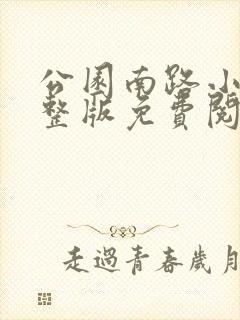 公園南路小
整版免費閱
走過青春歲月